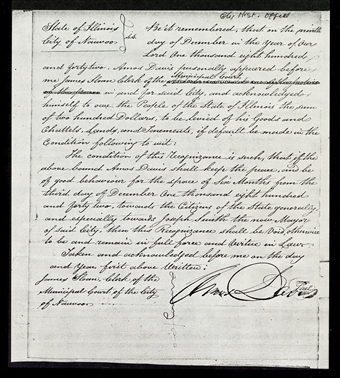 City Hist. Office
State of Illinois } Be it remembered, that on the
City of Nauvoo } Sct. day of December in the year of our
Lord One thousand eight hundred
and forty two. Amos Davis personally appeared before
me James Sloan Clerk of the Municipal Court,
in and for said City, and acknowledged
himself to owe the People of the State of Illinois the sum
of two hundred Dollars, to be levied of his Goods and
Chattels, Lands, and Tenements, if default be made in the
Condition following to wit:
The condition of this Recognizance is such, that if the
above bound Amos Davis shall keep the peace, and be
of good behavior for the space of Six Months from the
third day of December One thousand eight hundred
and forty two, towards the Citizens of the State generally,
and especially towards Joseph Smith the now Mayor
of said City, then this Recognizance shall be Void, otherwise
to be and remain in full force and Virtue in Law.
Taken and acknowledged before me on the day
and Year first above Written:
James Sloan, Clerk of the
Municipal Court of the City
of Nauvoo
Amos Davis Seal